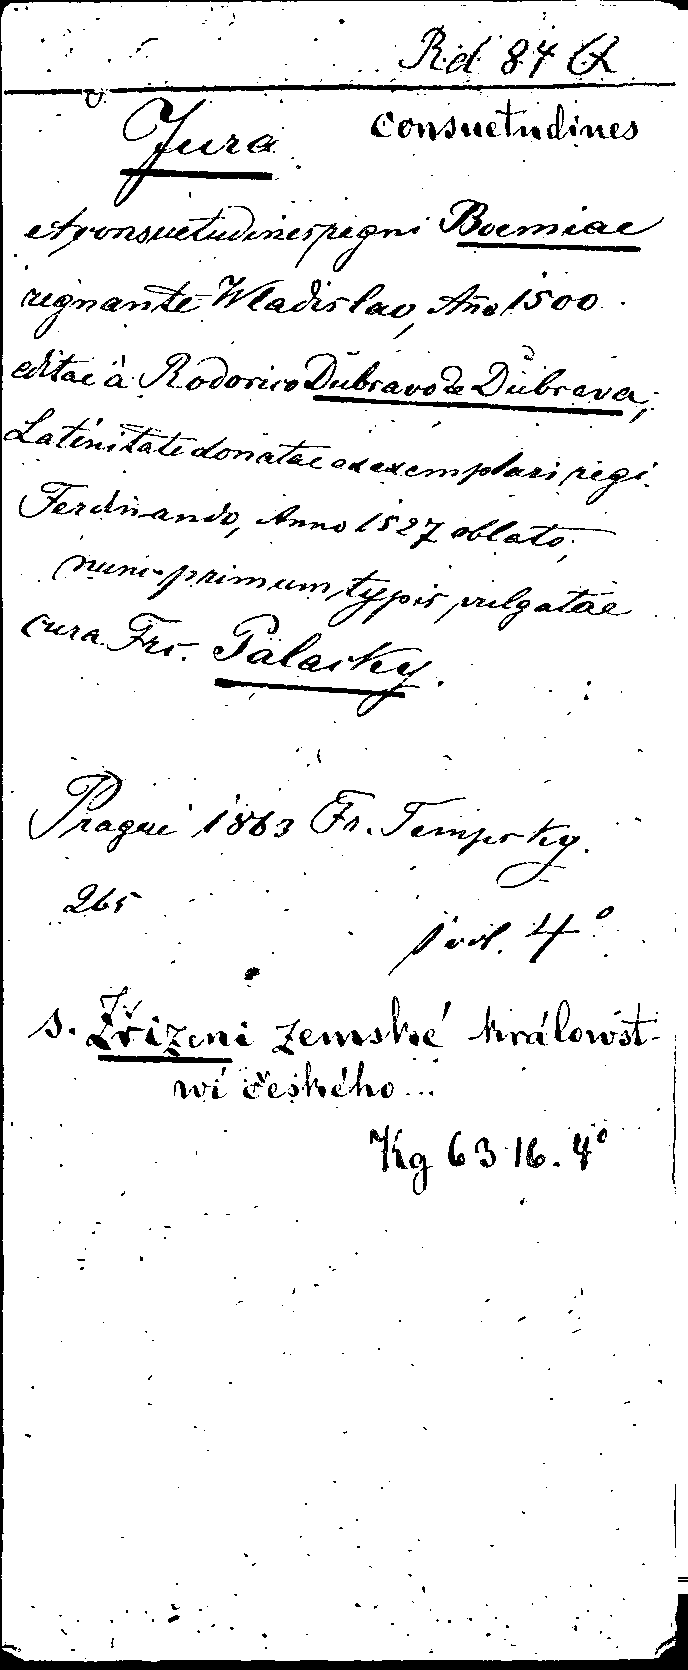 Rd 84 a
Jura consuetudines
et consuetudines regni Boemiae
regnante Wladislao, Año 1500
editae à Rodorico Dubravo de Dubrava,
Latinitate donatae ex exemplari regi
Ferdinando, Anno 1527 oblato,
nunc primum typis vulgatae
cura Frc. Palacky.
Pragae 1863 Fr. Tempsky.
265
1 vol. 4°
s. Zřizeni zemské králowst-
wí českého...
Kg 6316. 4°